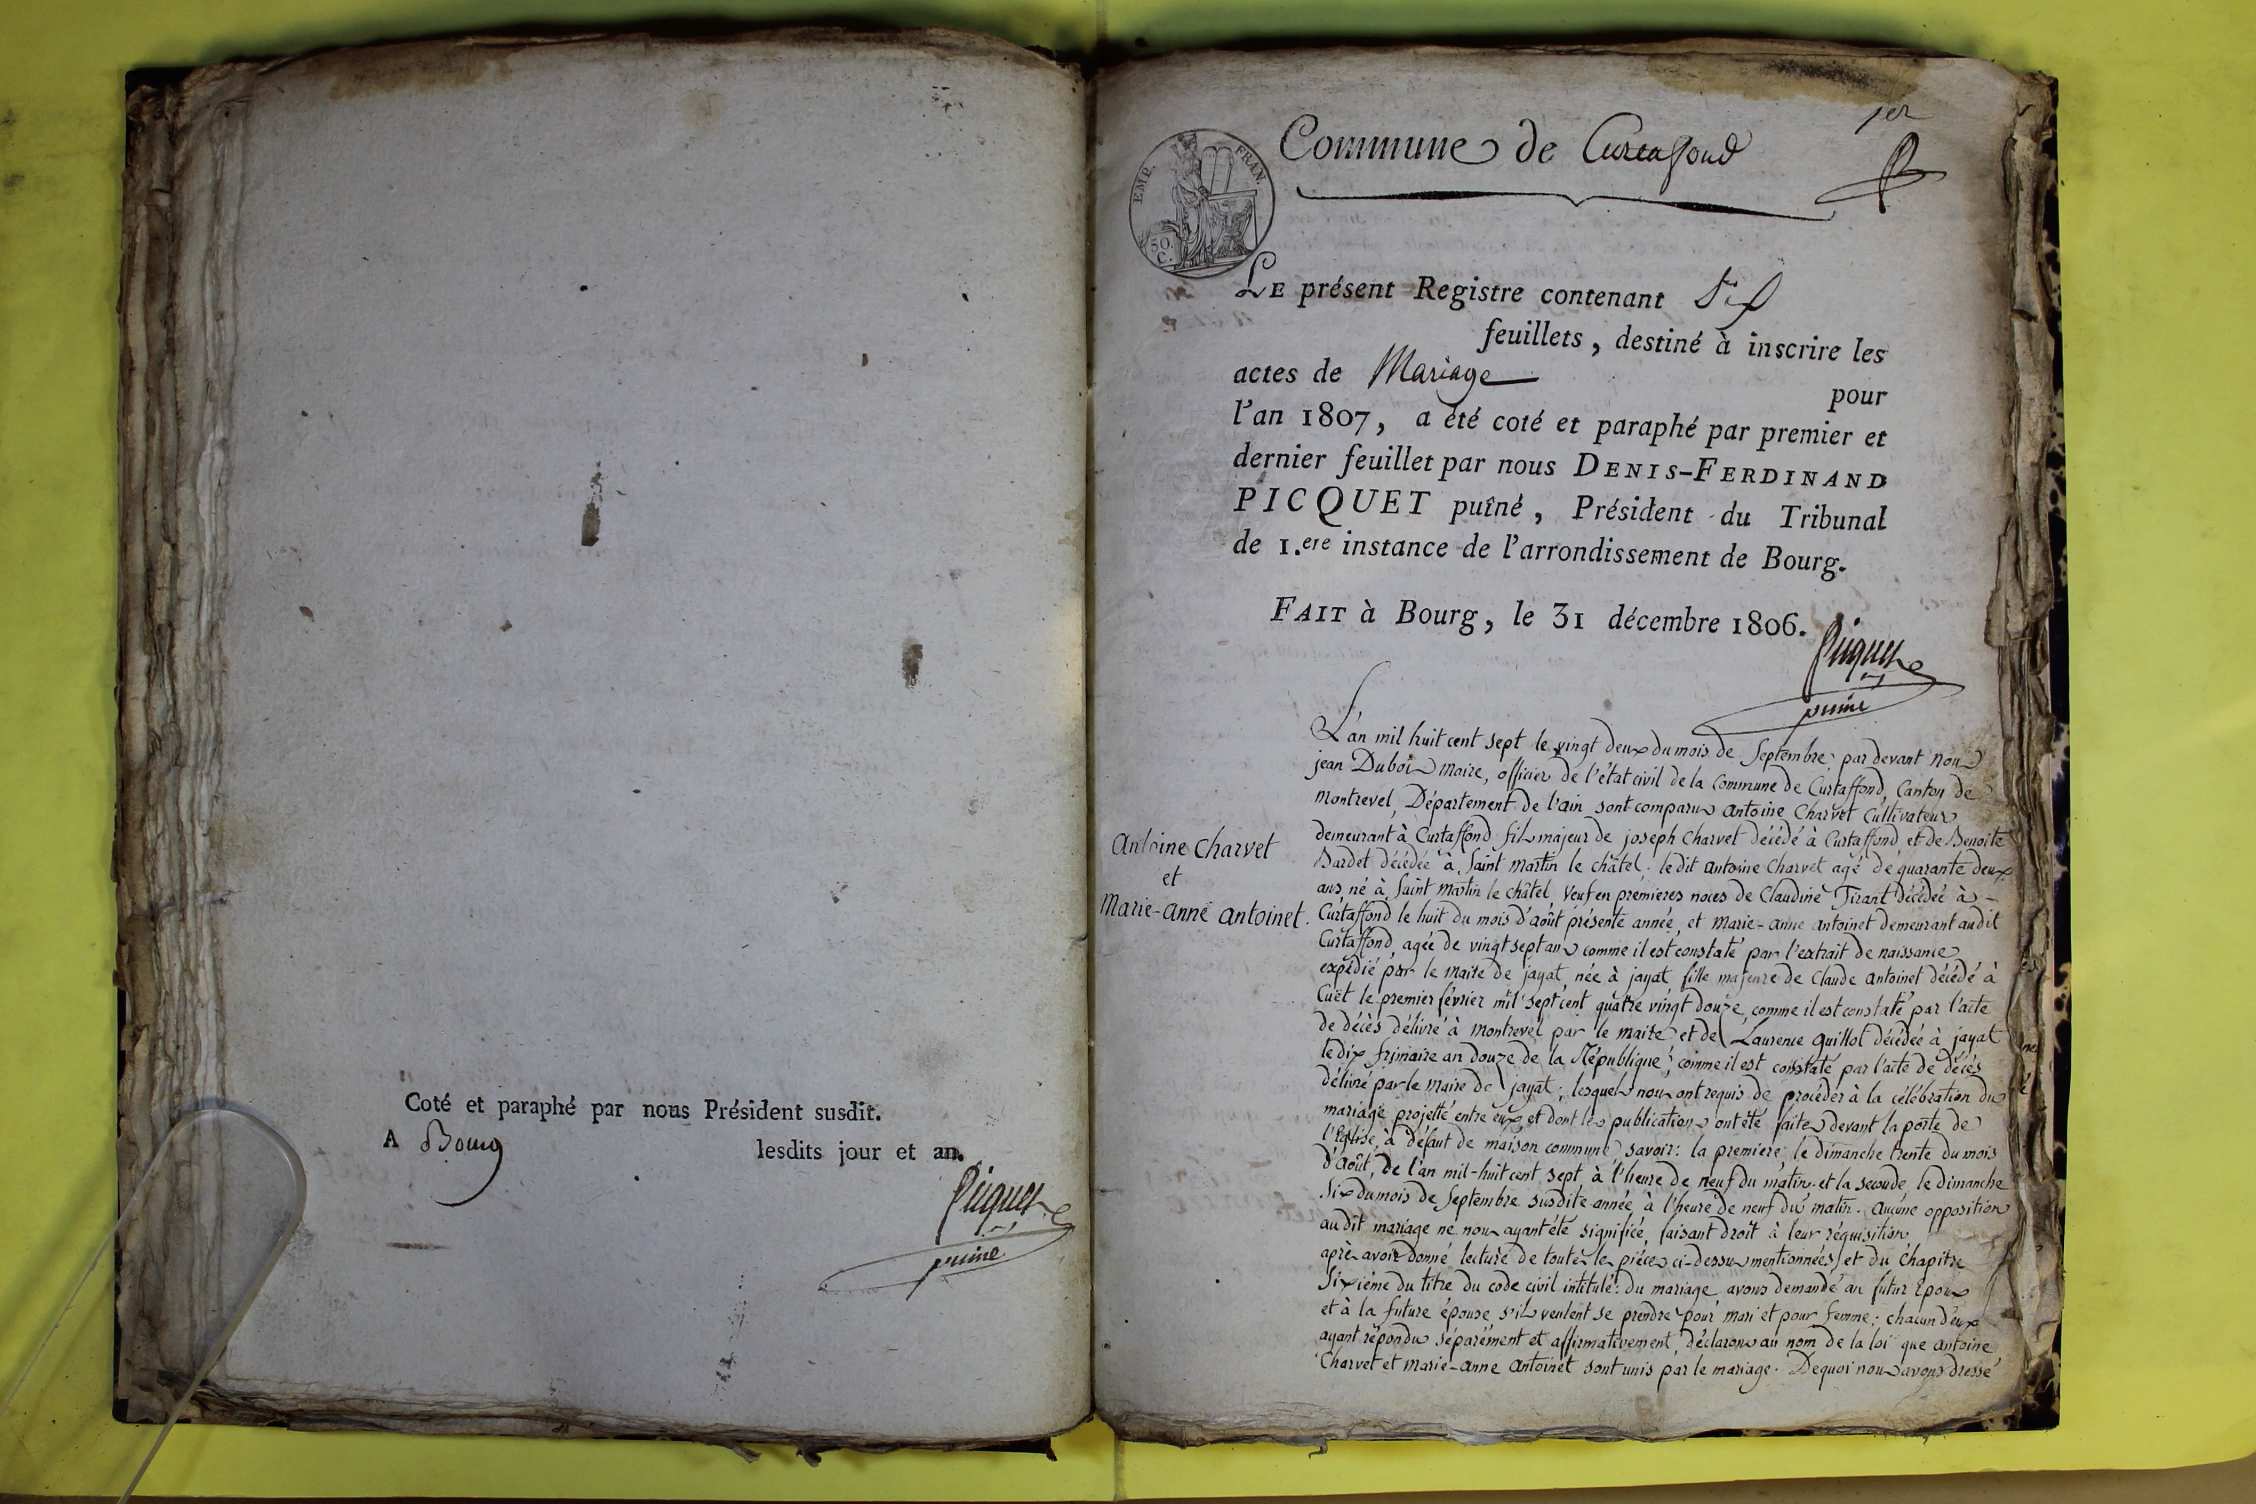 Coté et paraphé par nous Président susdit.
A Bourg lesdits jour et an.
Picquet
puiné
1er
Commune de Curtafond
EMP. FRAN.
50.
C.
LE présent Registre contenant Six
feuillets, destiné à inscrire les
actes de Mariage pour
l'an 1807, a été coté et paraphé par premier et
dernier feuillet par nous DENIS-FERDINAND
PICQUET puîné, Président du Tribunal
de 1.ere instance de l'arrondissement de Bourg.
FAIT à Bourg, le 31 décembre 1806.
Picquet
puiné
Antoine Charvet
et
Marie-Anne Antoinet.
L'an mil huit cent sept le vingt deux du mois de Septembre, par devant nous
jean Dubois Maire, officier de l'état civil de la Commune de Curtaffond, Canton de
Montrevel, Département de l'ain sont comparus Antoine Charvet Cultivateur
demeurant à Curtaffond fils majeur de joseph Charvet décédé à Curtaffond et de Benoite
Bardet décédée à Saint Martin le châtel. ledit Antoine Charvet agé de quarante deux
ans né à Saint Martin le châtel, Veuf en premieres noces de Claudine Tirant décédée à
Curtaffond le huit du mois d'août présente année, et Marie-Anne Antoinet demeurant audit
Curtaffond, agée de vingt sept ans comme il est constaté par l'extrait de naissance
expédié par le maire de jayat, née à jayat, fille majeure de Claude Antoinet décédé à
Cuet le premier février mil sept cent quatre vingt douze, comme il est constaté par l'acte
de décès délivré à Montrevel par le maire et de Laurence Guillot décédée à jayat
le dix frimaire an douze de la République, comme il est constaté par l'acte de décès
délivré par le maire de jayat; lesquels nous ont requis de procéder à la célébration du
mariage projetté entre eux et dont les publications ont été faites devant la porte de
l'Eglise, à défaut de maison commune savoir: la premiere, le dimanche trente du mois
d'août, de l'an mil-huit cent sept à l'heure de neuf du matin et la seconde, le dimanche
Six du mois de Septembre susdite année à l'heure de neuf du matin. Aucune opposition
audit mariage ne nous ayant été signifiée, faisant droit à leur réquisition,
après avoir donné lecture de toutes les piéces ci-dessus mentionnées, et du Chapitre
Sixieme du titre du code civil intitulé: du mariage, avons demandé au futur époux
et à la future épouse s'ils veulent se prendre pour mari et pour femme; chacun d'eux
ayant répondu séparément et affirmativement, déclarons au nom de la loi que Antoine
Charvet et Marie-Anne Antoinet sont unis par le mariage. De quoi nous avons dressé